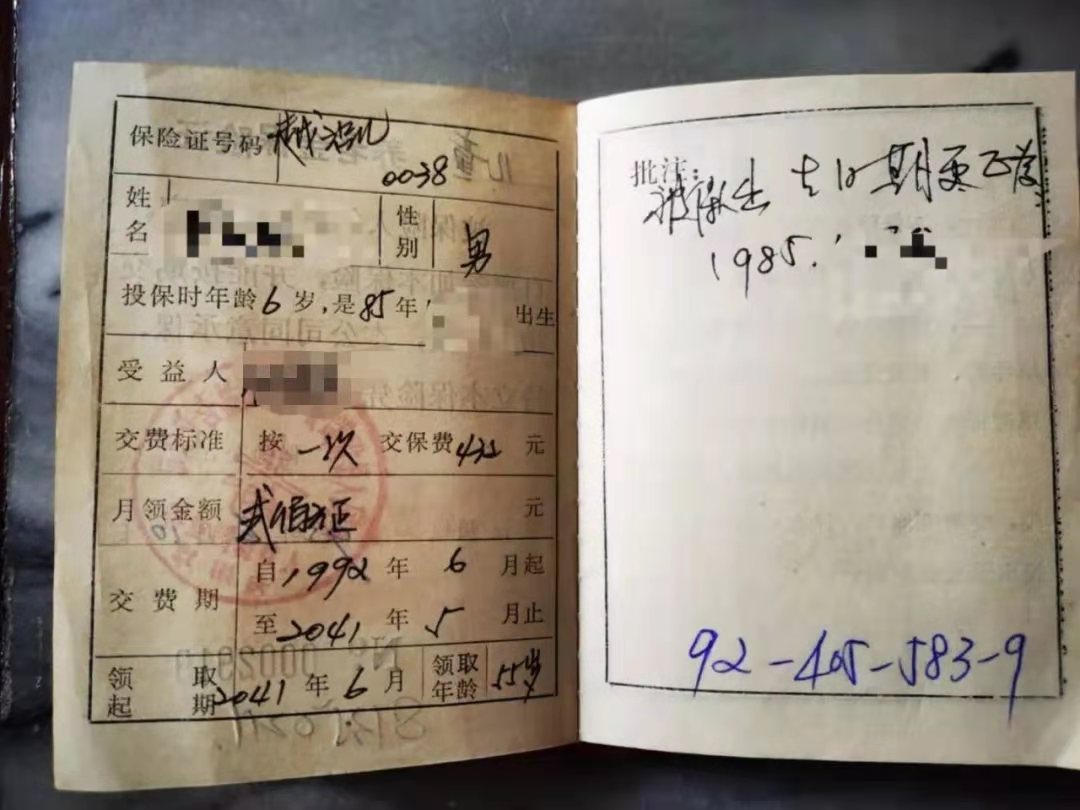 保险证号码
0038
姓名
性别 男
投保时年龄6岁,是85年 出生
受益人
交费标准 按一次交保费432元
月领金额 贰佰元正 元
交费期 自1992年6月起
至2041年5月止
领取起期 2041年6月 领取年龄 55岁
批注:
出生日期更正为
1985.
92-405-583-9